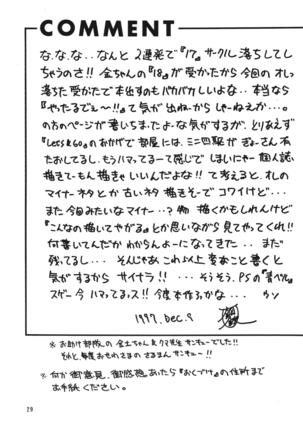 COMMENT
な、な、な‥なんと 2連発で『17』サークル落ちしてし
ちゃうのさ!! 金ちゃんの『18』が受かったから今回のオレっ
落ちた受かたで本出すのもバカバカしいよな‥ 本当なら
『やったるでぇ〜!!』て気が出ねーからしゃーねえか…。
の方のページが書いちまったよーな気がするが、とりあえず
『Let's&Go』のおかげで部屋には、ミニ四駆がぎょーさん有
たおしてるし、もうハマってるーって感じで しまいにゃー個人誌、
描きてーもん描きゃいいんだよな!! て考えると、オレの
マイナーネタとか古いネタ描きそーで コワイけど…
また今回みたいなマイナー‥?物 描くかもしれんけど
『こんなの描いてやがる』とか思いながら見てやってくれ!!
何書いてんだか わからんよーになってきた‥ まだ
残ってるし… そんじゃあこれ以上 変なこと書くと
気がするから サイナラ!! … そうそう、PSの
スゲー今ハマってまっス!! 今度本作ろかな…
1997. Dec. 9
※お助け部隊の 金土ちゃん&クマ先生サンキューでした!!
それと、毎度おせわさまの さるまん サンキュー!!
※何か御意見、御感想、あったら『おくづけ』の住所まで
お手紙ください。
29